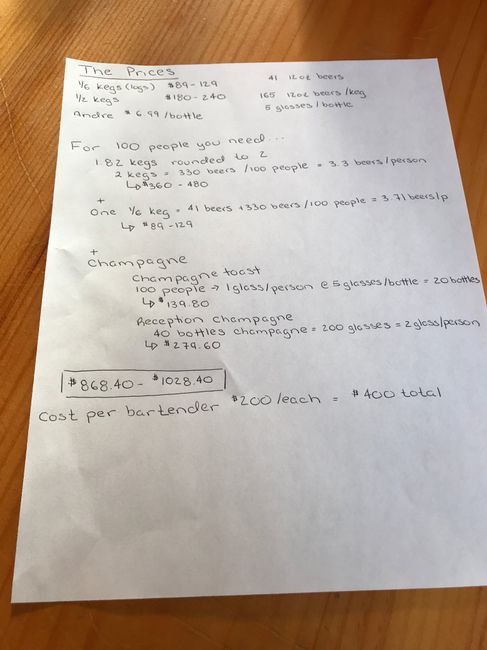 The Prices
1/6 kegs (logs) $89-129 41 12oz beers
1/2 kegs $180-240 165 12oz beers/keg
Andre $6.99/bottle 5 glasses/bottle
For 100 people you need...
1.82 kegs rounded to 2
2 kegs = 330 beers/100 people = 3.3 beers/person
↳ $360 - 480
+
One 1/6 keg = 41 beers +330 beers/100 people = 3.71 beers/p
↳ $89-129
+
Champagne
Champagne toast
100 people → 1glass/person @ 5 glasses/bottle = 20 bottles
↳ $139.80
Reception champagne
40 bottles champagne = 200 glasses = 2 glass/person
↳ $279.60
$868.40 - $1028.40
Cost per bartender $200/each = $400 total